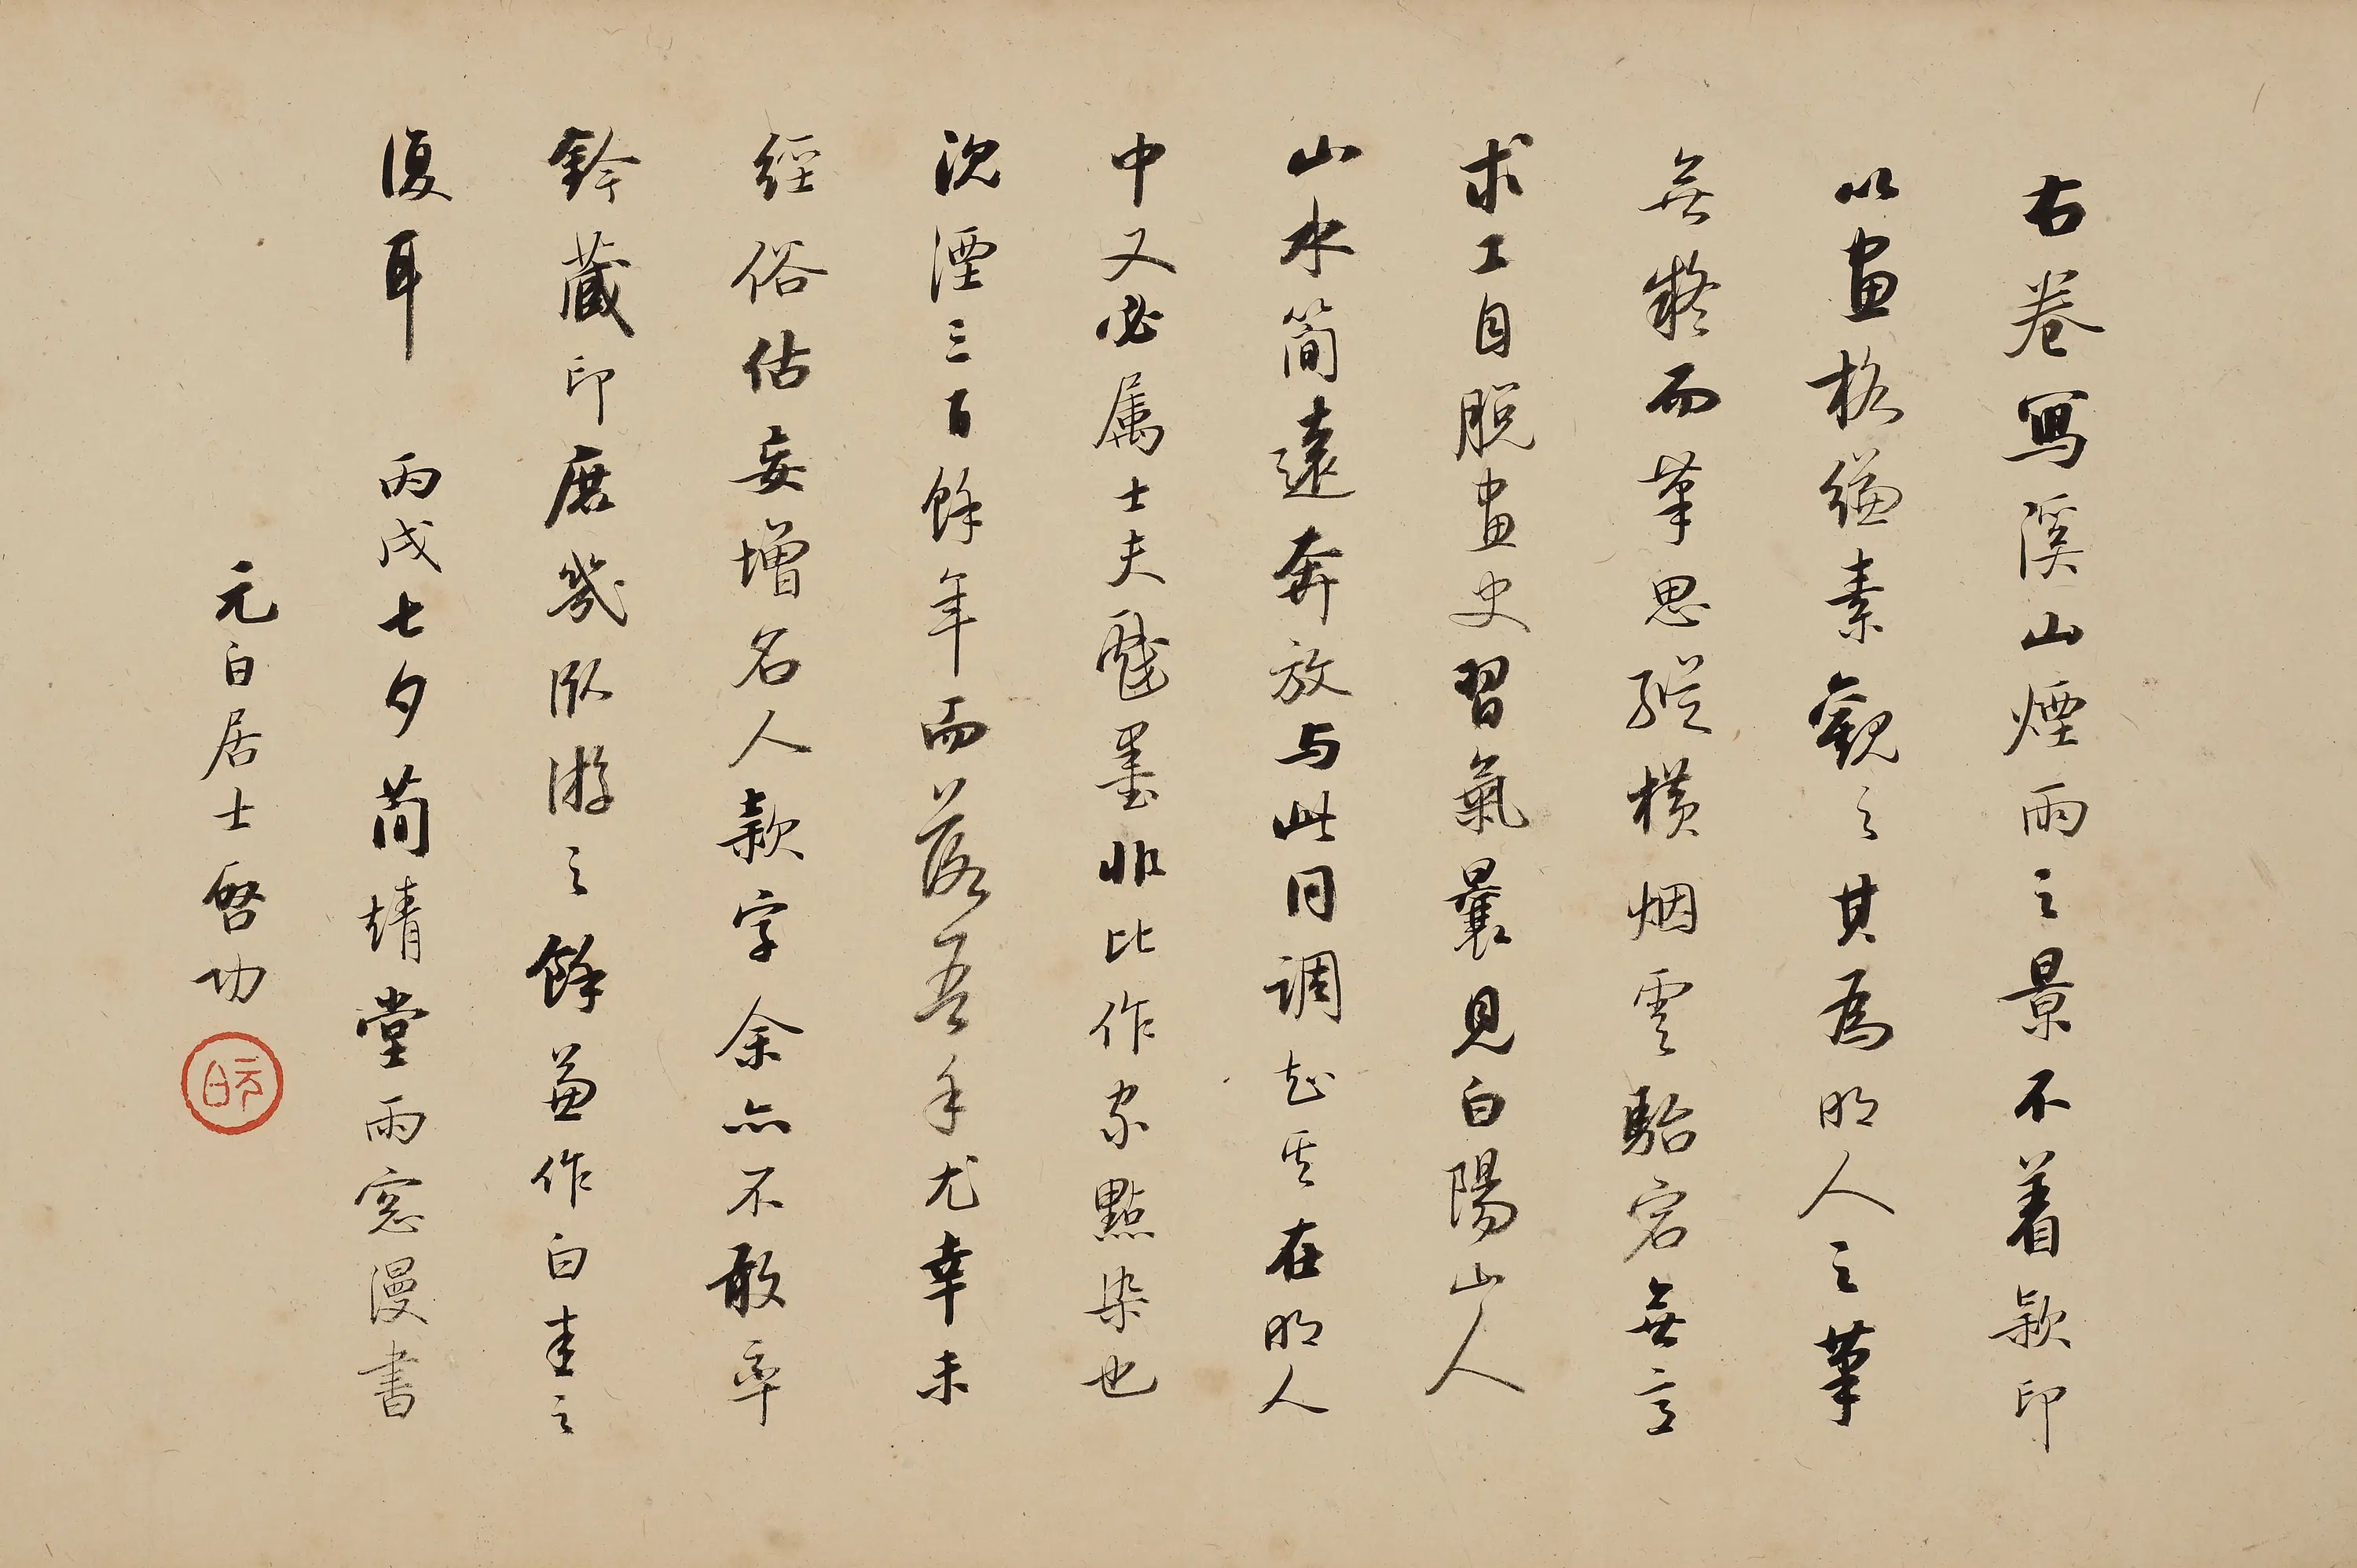 右卷寫溪山煙雨之景不着款印
以畫格縑素觀之其為明人之筆
無疑而筆思縱橫烟雲駘宕無意
求工自脫畫史習氣曩見白陽山人
山水簡遠奔放与此同調知其在明人
中又必屬士夫戲墨非比作家點染也
沈湮三百餘年而落吾手尤幸未
經俗估妄增名人款字余亦不敢率
鈐藏印庶幾臥游之餘兼作白圭之
復耳 丙戌七夕簡靖堂雨窓漫書
元白居士啓功
元白